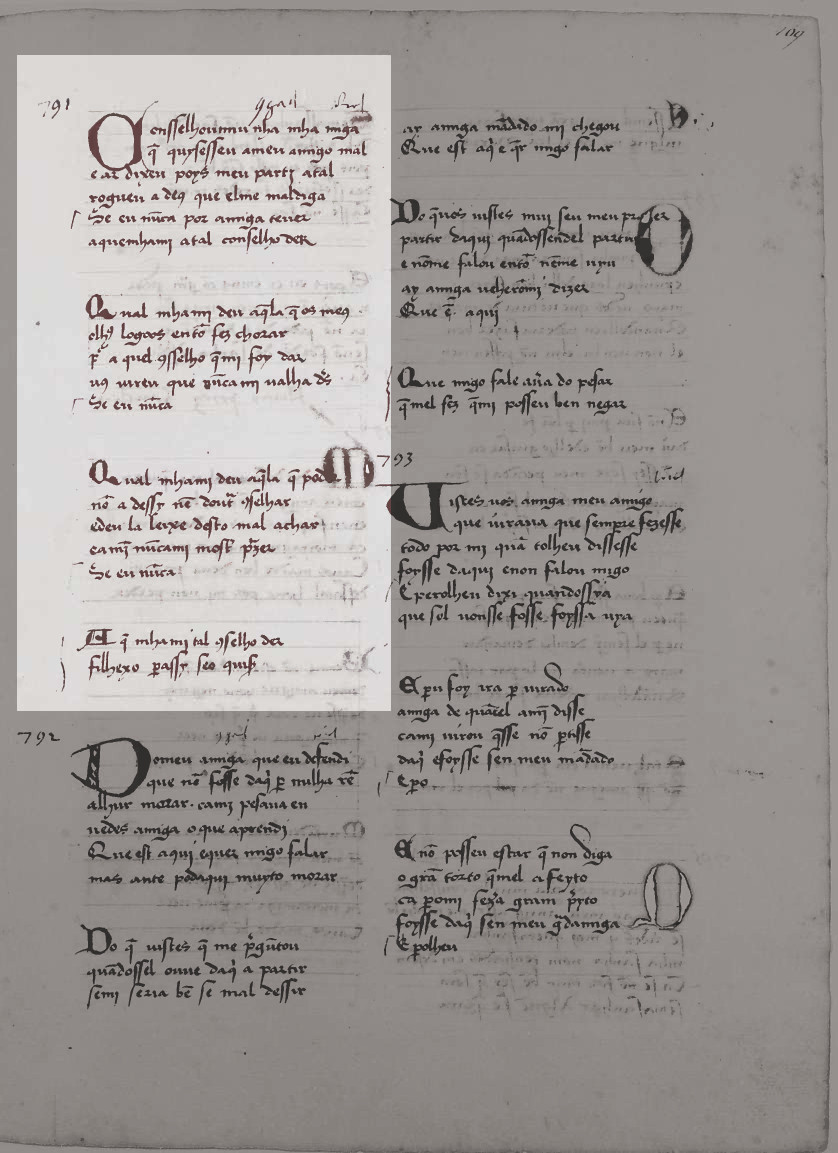 791
Consselhoumiu nha mha migã
q̃ quysesseu ameu amigo mal
e ar dixeu poys meu partj atal
rogueu a deq que elme maldiga
Se eu nũca por amiga teuer
aquemhami atal conselho der
Qual mhami deu aq̃la q̃ os meq
olhq logoos entõ fez chorar
a quel 9sselho q̃mi foy dar
uq uireu que nũca mi ualha ds̃
Se eu nũca
Qual mhami deu aq̃la q̃ pode
nõ a dessy nẽ dout̃ 9selhar
edeu la leixe desto mal achar
eamj nũcami most̃ p̃zer
Se eu nũca
A q̃ mhami tal 9selho der
filhexo passy seo quis̃
792
Domeu amiga que eu defendi
que nõ fosse daq̃ p nulha rẽ
alhur morar. camj pesaua en
uedes amiga o que aprendj
Que est aqui equer migo falar
mas ante podaqui muyto morar
Do q̃ uistes q̃ me p̃gũtou
quãdossel ouue daq̃ a partir
semi seria bẽ se mal dessir
109
ay amiga mãdado mi chegou
Que est aq̃ e q̃r migo falar
Do q̃uos uistes mui seu meu prazer
partir daqui quãdossendel partiu
e nõme falou entõ nẽme uyu
ay amiga ueherõmj dizer
Que ẽ aqui
Que migo fale aũa do pesar
q̃mel fez q̃mi posseu ben negar
793
Vistes uos amiga meu amigo
que iuraua que sempre fezesse
todo por mi quã tolheu dissesse
foysse daqui enon falou migo
E perolheu dixi quandossya
que sol nonsse fosse foyssa uya
E pu foy ira p iurado
amiga de quãtel amj̃ disse
cami uirou q̃sse nõ p̃tisse
daq̃ efoysse sen meu mãdado
E pero
E nõ posseu estar q̃ non diga
o grã torto q̃mel a feyto
ca pomi fez̃a gram p̃yto
foysse daq̃ sen meu g̃damiga
E polheu